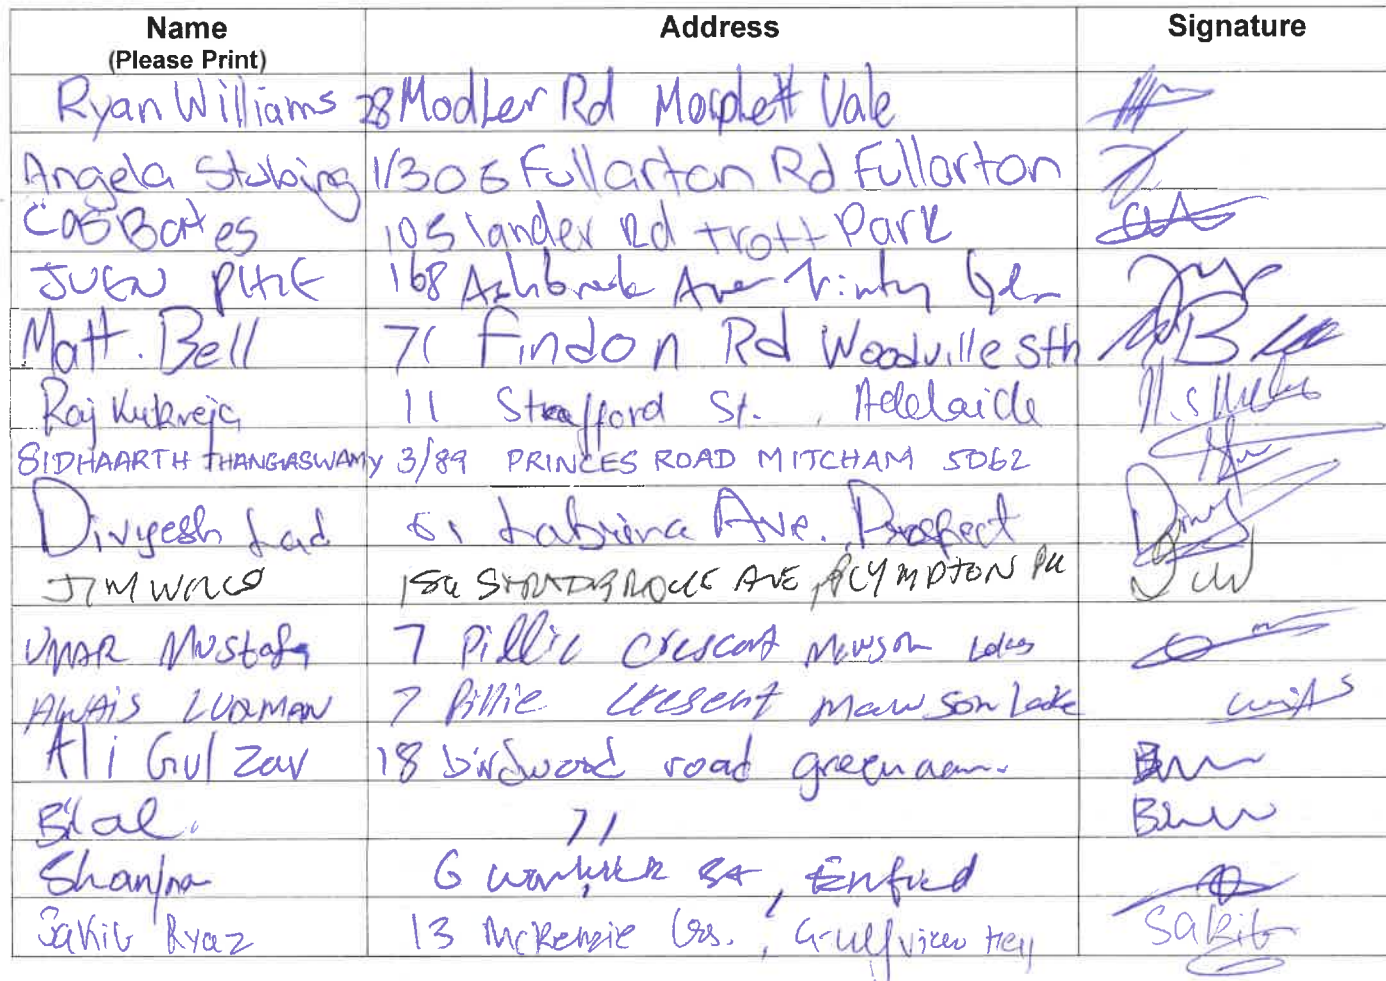 Name Address Signature
(Please Print)
Ryan Williams 28 Modler Rd Morphett Vale
Angela Stubing 1/305 Fullarton Rd Fullarton
Cas Bates 105 lander Rd trott Park
JUEN 168 Ashbrook Ave
Matt. Bell 71 Findon Rd Woodville Sth
Raj Kukreja 11 Strafford St., Adelaide
SIDHAARTH THANGASWAMY 3/89 PRINCES ROAD MITCHAM 5062
Divyesh Lad 61 Labrina Ave. Prospect
JIM AVE, PLYMPTON PK
UMAR Mustafa 7 Pillie Crescent Mawson Lakes
AWAIS LUQMAN 7 Pillie Cresent Mawson Lake
Ali Gulzar 18 birdwood road
Bilal. 71
6 St, Enfield
Sakib Ryaz 13 McKenzie Crs., Gulfview Hei Sakib